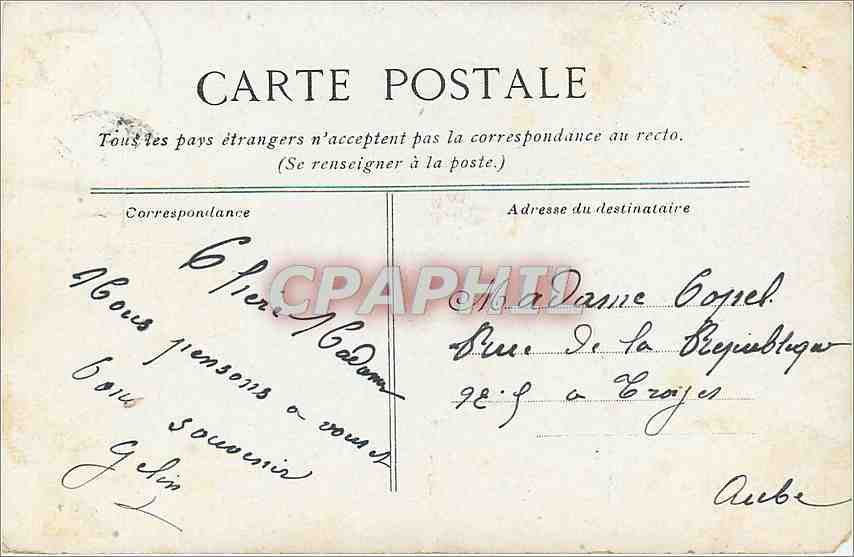 CARTE POSTALE
Tous les pays étrangers n'acceptent pas la correspondance au recto.
(Se renseigner à la poste.)
Correspondance
Adresse du destinataire
CPAPHIL
Chère Madame
Nous pensons a vous et
bons souvenir
Gelin
Madame Copel
Rue de la Republique
a Troyes
Aube